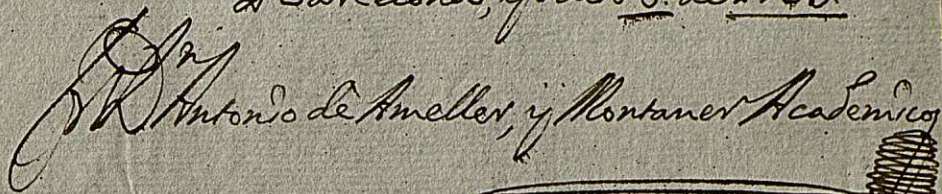 Barcelona, y
Dn. Antonio de Ameller, y Montaner Academico